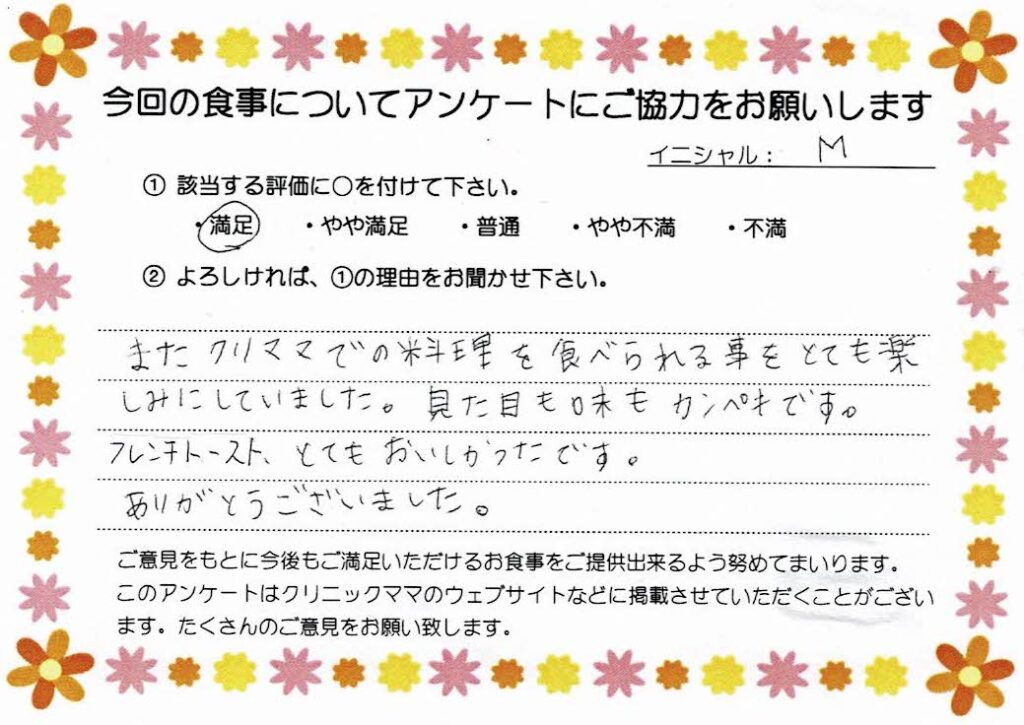 今回の食事についてアンケートにご協力をお願いします
イニシャル： M
① 該当する評価に○を付けて下さい。
・満足 ・やや満足 ・普通 ・やや不満 ・不満
② よろしければ、①の理由をお聞かせ下さい。
またクリママでの料理を食べられる事をとても楽
しみにしていました。見た目も味もカンペキです。
フレンチトースト、とてもおいしかったです。
ありがとうございました。
ご意見をもとに今後もご満足いただけるお食事をご提供出来るよう努めてまいります。
このアンケートはクリニックママのウェブサイトなどに掲載させていただくことがござい
ます。たくさんのご意見をお願い致します。